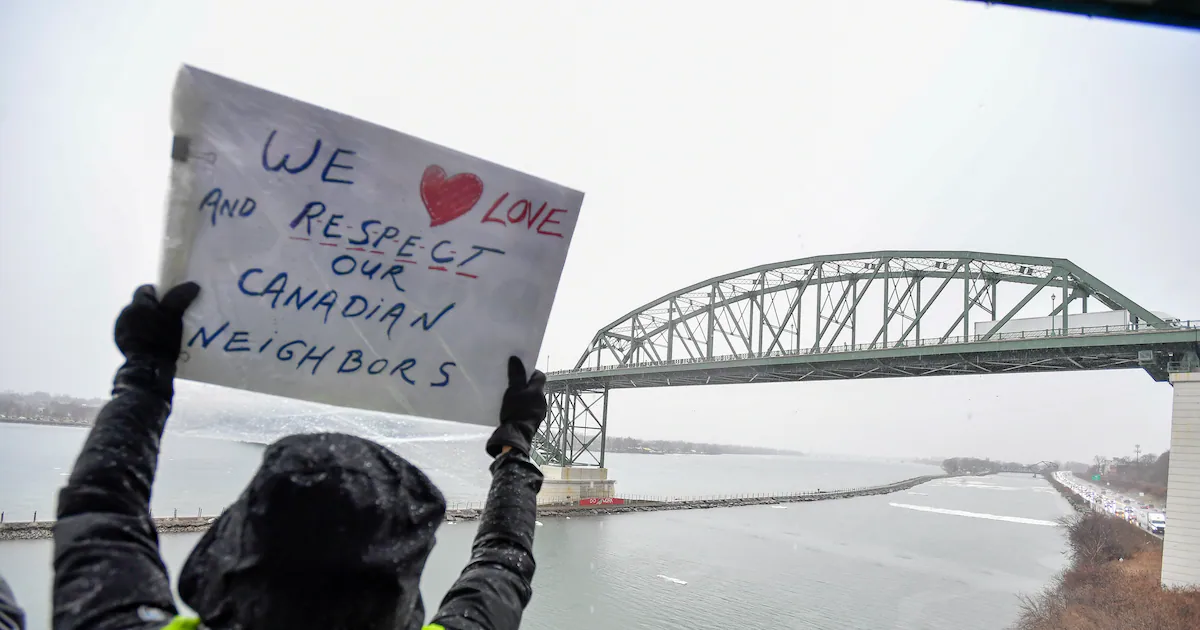 WE ❤ LOVE
AND R-E-S-P-E-C-T
OUR
CANADIAN
NEIGHBORS